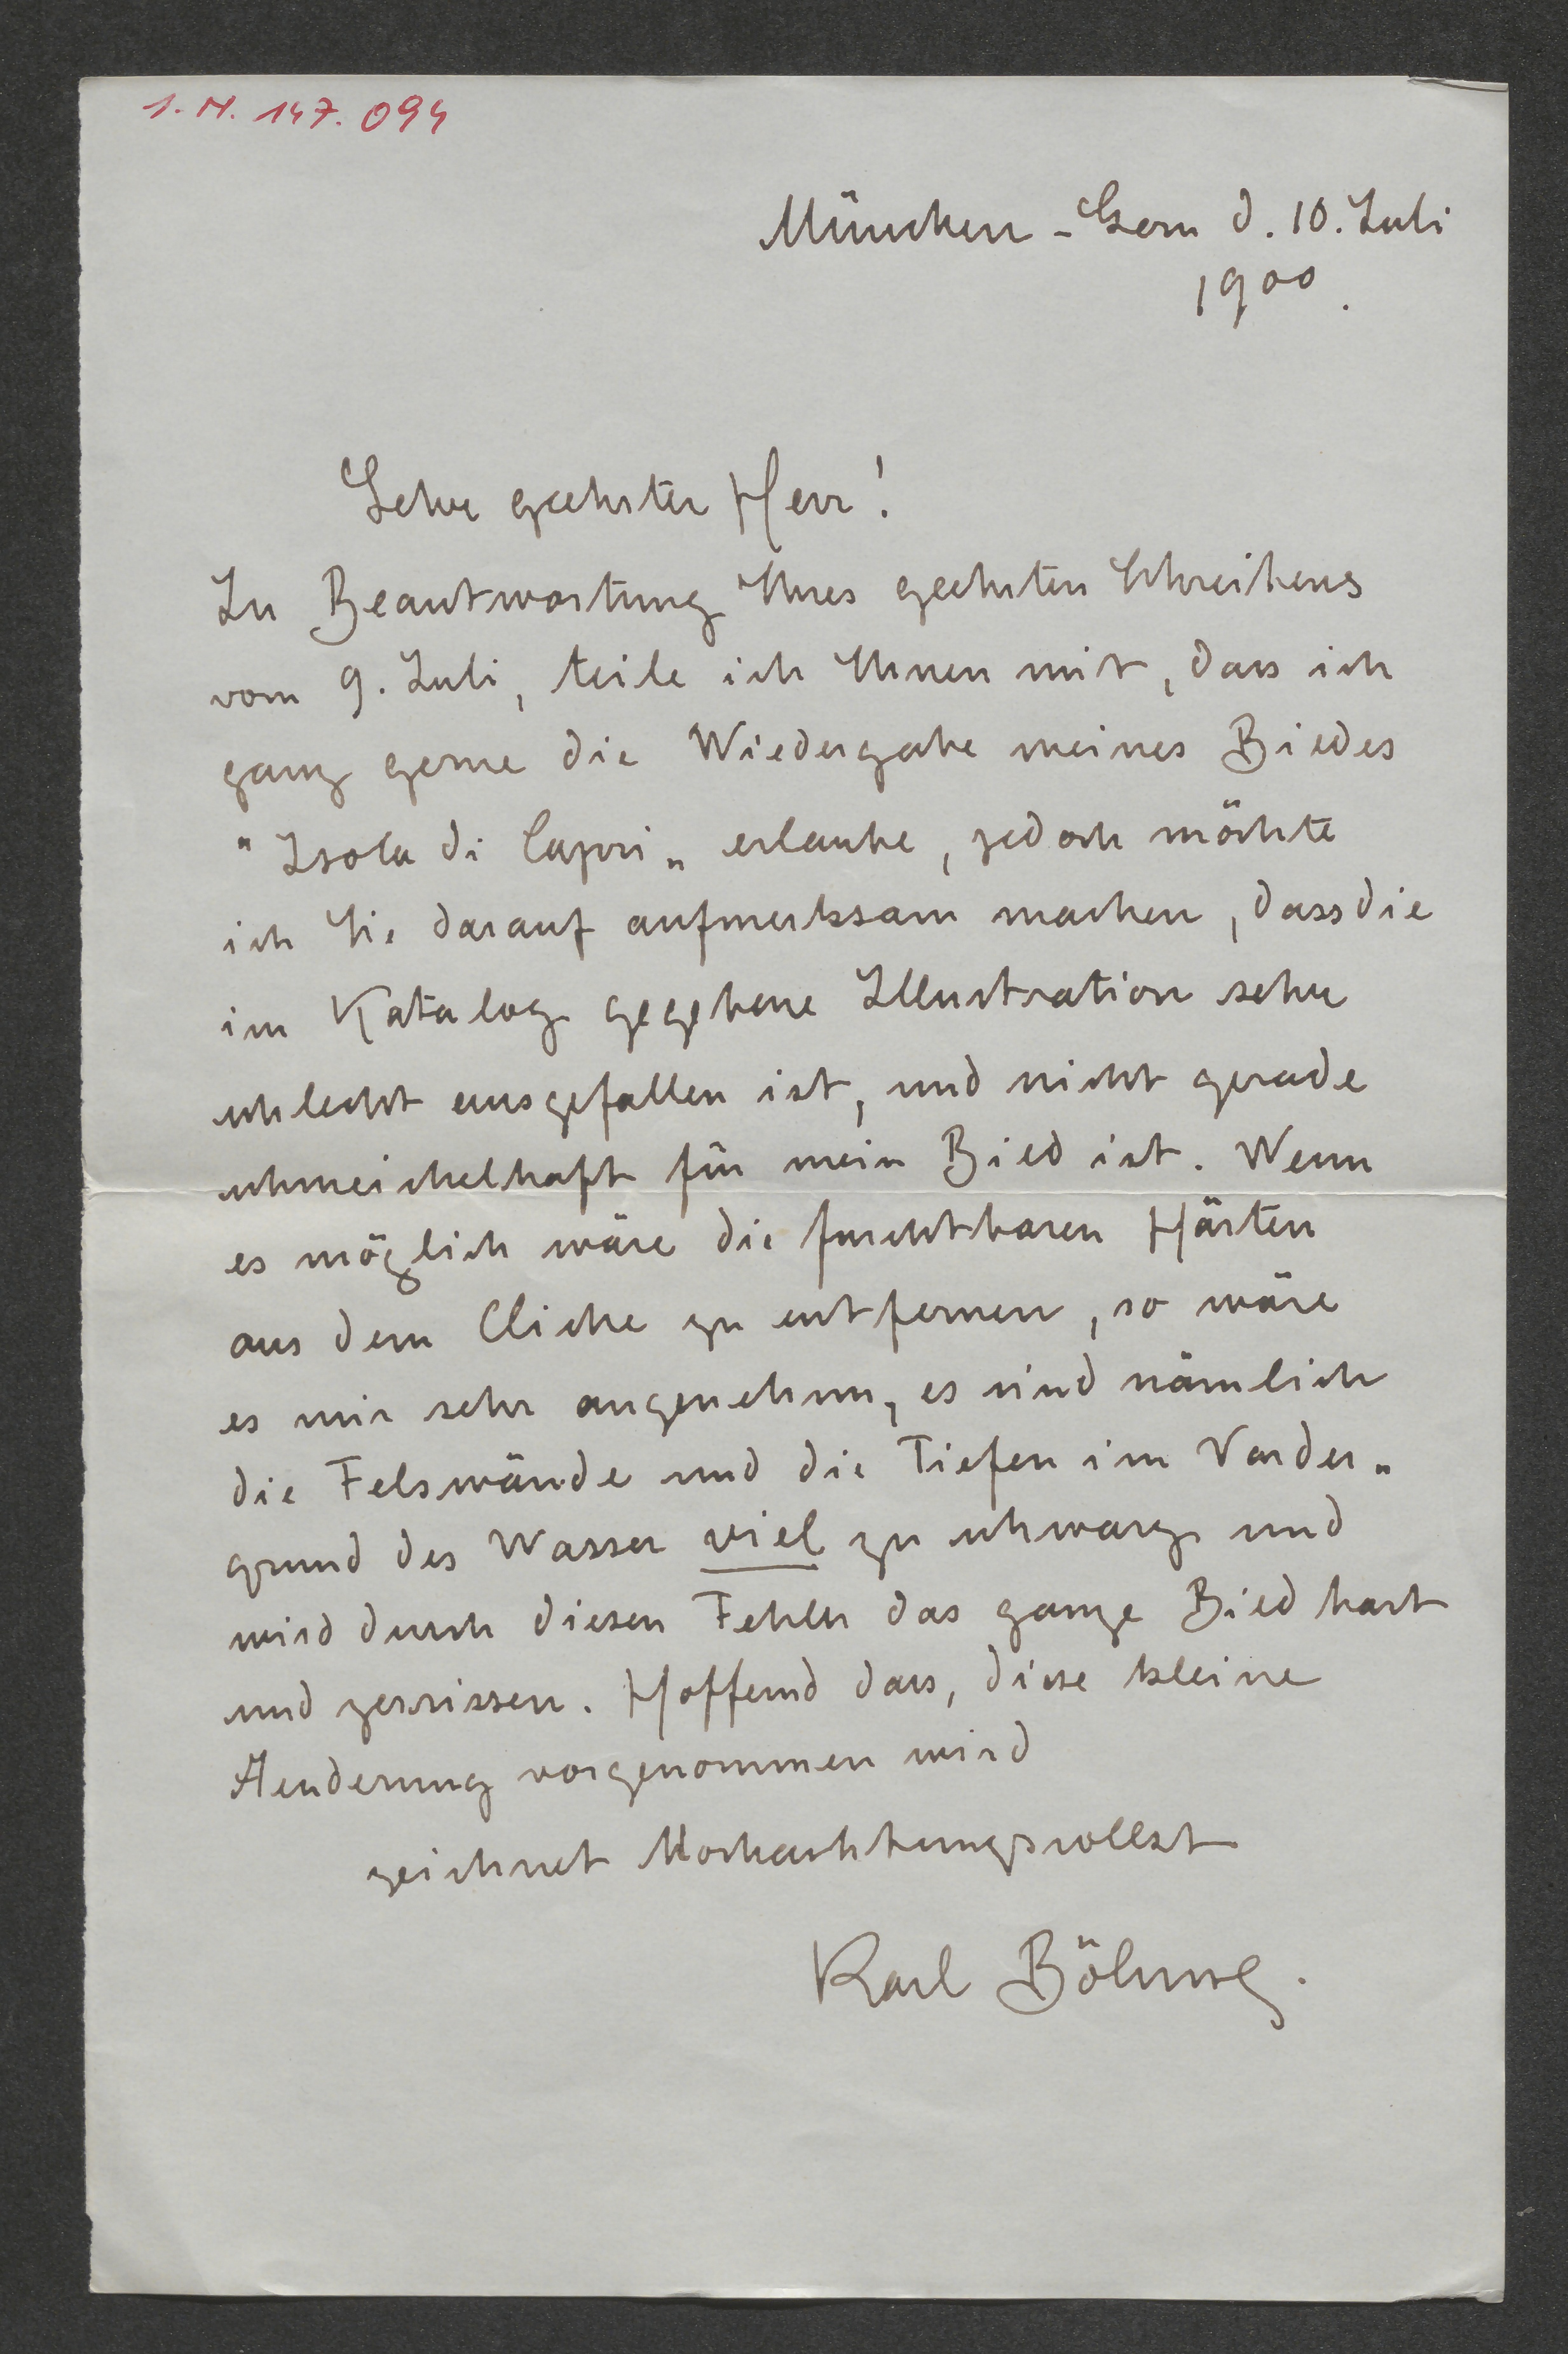 I. N. 147.094
München-Gern d. 10. Juli
1900.
Sehr geehrter Herr!
In Beantwortung Ihres geehrten Schreibens
vom 9. Juli, teile ich Ihnen mit, dass ich
ganz gerne die Wiedergabe meines Bildes
"Isola di Capri" erlaube, jedoch möchte
ich Sie darauf aufmerksam machen, dass die
im Katalog gegebene Illustration sehr
schlecht ausgefallen ist, und nicht gerade
schmeichelhaft für mein Bild ist. Wenn
es möglich wäre die furchtbaren Härten
aus dem Cliche zu entfernen, so wäre
es mir sehr angenehm, es sind nämlich
die Felswände und die Tiefen im Vorder-
grund des Wasser viel zu schwarz und
wird durch diesen Fehler das ganze Bild hart
und zerrissen. Hoffend dass, diese kleine
Aenderung vorgenommen wird
zeichnet Hochachtungsvollst
Karl Böhme.